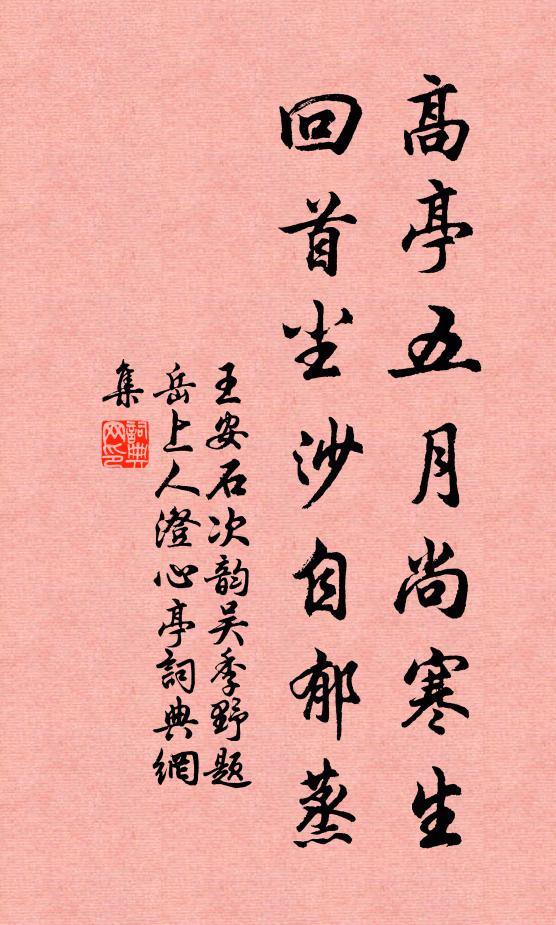 高亭五月尚寒生
回首尘沙自郁蒸
王安石次韵吴季野题
岳上人澄心亭詞典網
集
詞典網印